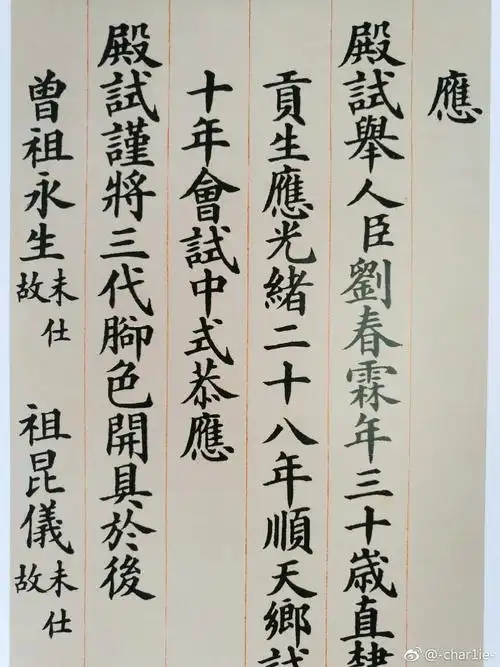 應
殿試舉人臣劉春霖年三十歲直隸
貢生應光緒二十八年順天鄉試
十年會試中式恭應
殿試謹將三代腳色開具於後
曾祖永生未仕故 祖昆儀未仕故
@-char1ie-